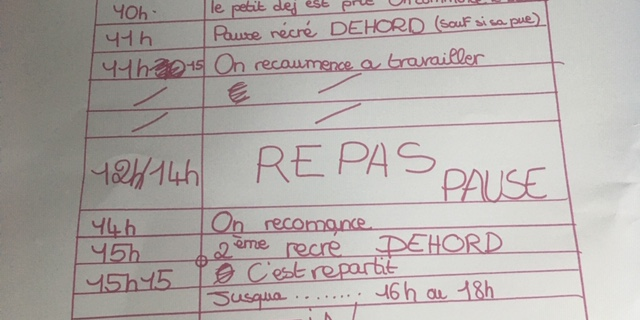 10h. le petit dej est prit On commence
11h Pause récré DEHORD (sauf si sa pue)
11h 15 On recaumence a travailler
12h/14h REPAS PAUSE
14h On recomance
15h 2ème recré DEHORD
15h15 C'est repartit
Jusqua ........ 16h ou 18h